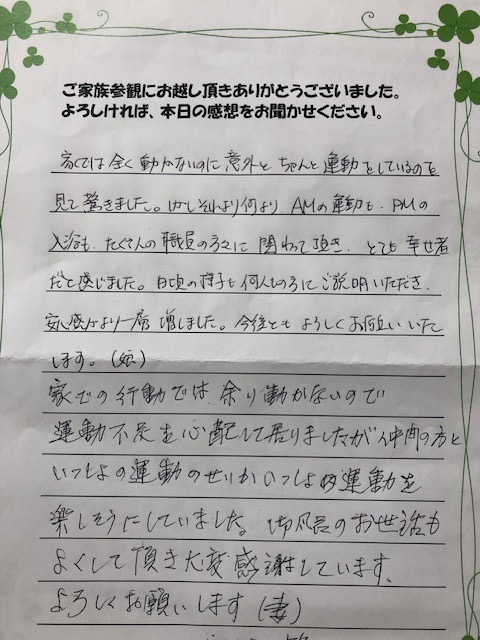 ご家族参観にお越し頂きありがとうございました。
よろしければ、本日の感想をお聞かせください。
家では全く動かないのに意外とちゃんと運動をしているのを
見て驚きました。しかしそれより何より、AMの運動も、PMの
入浴も、たくさんの職員の方々に関わって頂き、とても幸せ者
だと感じました。日頃の様子も何人もの方にご説明いただき、
安心感がより一層増しました。今後ともよろしくお願いいた
します。(娘)
家での行動では、余り動かないので
運動不足を心配して居りましたが仲間の方と
いっしょの運動のせいかいっしょ運動を
楽しそうにしていました。御風呂のお世話も
よくして頂き大変感謝しています、
よろしくお願いします(妻)